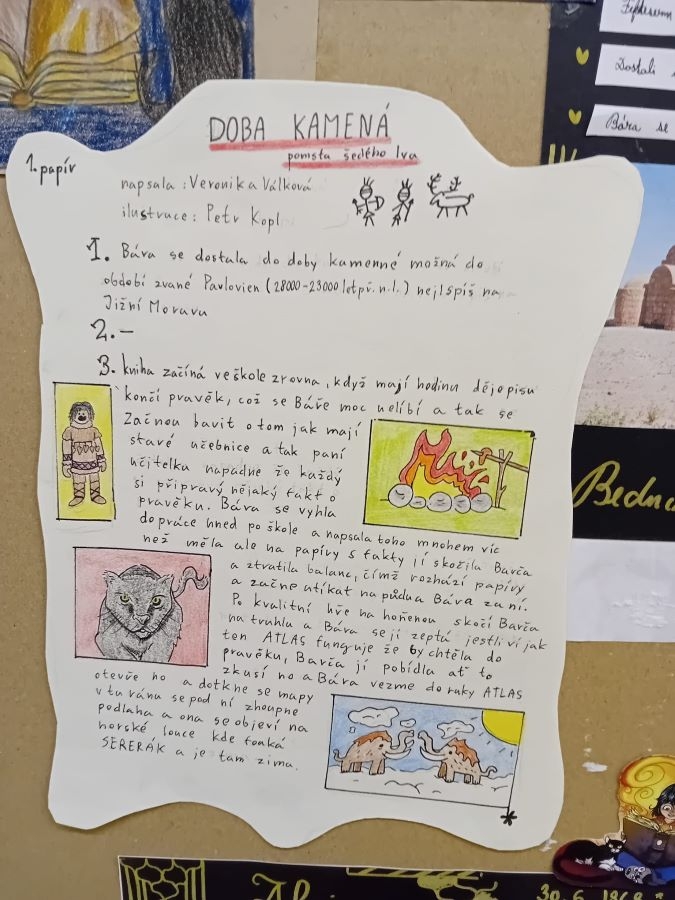 Dostali
Bára se
DOBA KAMENÁ
pomsta šedého lva
1. papív
napsala : Veronika Válková
ilustruce : Petr Kopl
1. Báva se dostala do doby kamenné možná do
období zvané Pavlovien (28000-23000 let př. n. l.) nejlspíš na
Jižní Moravu
2. -
3. kniha začíná ve škole zrovna, když mají hodinu dějopisu
končí pravěk, což se Báře moc nelíbí a tak se
Začnou bavit o tom jak mají
stavé učebnice a tak paní
učitelku napadne že každý
si připravý nějaký fakt o
pravěku. Báva se vyhla
do práce hned po škole a napsala toho mnohem víc
než měla ale na papívy s fakty jí skočila Barča
a ztratila balanc, čímž rozhází papívy
a začne utíkat na půdu a Báva za ní.
Po kvalitní hře na honěnou skočí Barča
na truhlu a Báva se jí zeptá jestli ví jak
ten ATLAS funguje že by chtěla do
pravěku, Barča jí pobídla ať to
zkusí no a Báva vezme do ruky ATLAS
otevře ho a dotkne se mapy
v tu ránu se pod ní zhoupne
podlaha a ona se objeví na
horské louce kde fouká
SEVERÁK a je tam zima.
*
30. 6. 1968